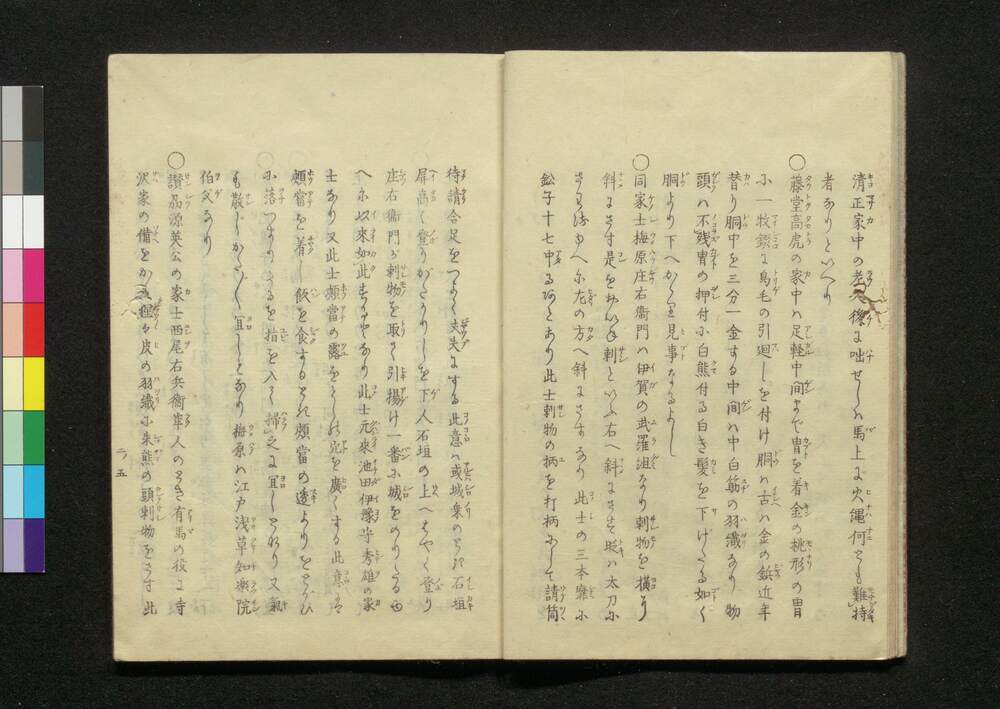 清正家中の老人後に咄せしハ馬上に火縄何とも難持
者なりといへり
○藤堂高虎の家中ハ足軽中間まで冑を着金の桃形の冑
に一枚錣に鳥毛の引廻しを付け胴ハ古ハ金の鋲近年
替り胴中を三分一金する中間ハ中白筋の羽織なり物
頭ハ不残冑の押付に白熊付る白き髪を下げたる如く
胴より下へかゝり見事なるよし
○同家士梅原庄右衛門ハ伊賀の武羅沮なり刺物を横に
斜にさす是をおんを刺といふ右へ斜にさせば太刀に
さわる故へに左の方へ斜にさすなり此士の三本靡に
鉛子十七中るあとあり此士刺物の柄を打柄にして請筒
待請合足をつよく丈夫にする此意ハ或城乗のとき石垣
屏高く登りがたかりしを下人石垣の上へはやく登り
庄右衛門が刺物を取て引揚け一番に城をのりたる由
へに以来如此するなり此士元来池田伊豫守秀雄の家
士なり又此士頬當の露をとし穴を廣くする此意ハ
頬當を着し飯を食するとき頬當の透よりをとがひ
に落つまりたるを指を入て掃之に宜しとなり又氣
も散じかた〲宜しとなり梅原ハ江戸浅草知楽院
伯父なり
○讃州源英公の家士西尾右兵衛隼人のとき有馬の役に寺
沢家の備をかり狸々皮の羽織に朱熊の頭刺物をさす此
二ノ五